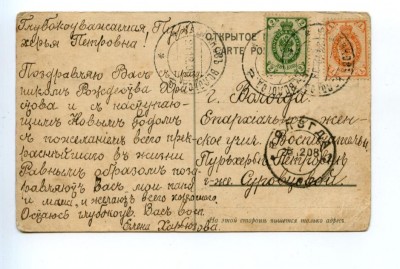 Глубокоуважаемая Пуль-
херья Петровна!
Поздравляю Васъ
съ праздникомъ Рождества Хри-
стова и съ наступаю-
щимъ Новымъ Годомъ
съ пожеланіемъ всего пре-
краснѣйшаго въ жизни
Равнымъ образомъ позд-
равляютъ Васъ мои папа
и мама, и желаютъ всего хорошаго.
Остаюсь глубокоув. Васъ восп.
Елена
ОТКРЫТОЕ
CARTE PO
г. Вологда
Епархіальное жен-
ское учил. Воспитательницѣ
Пульхеріи Петровнѣ
г-жѣ Суровцевой
ВОЛОГДА
На этой сторонѣ пишется только адресъ